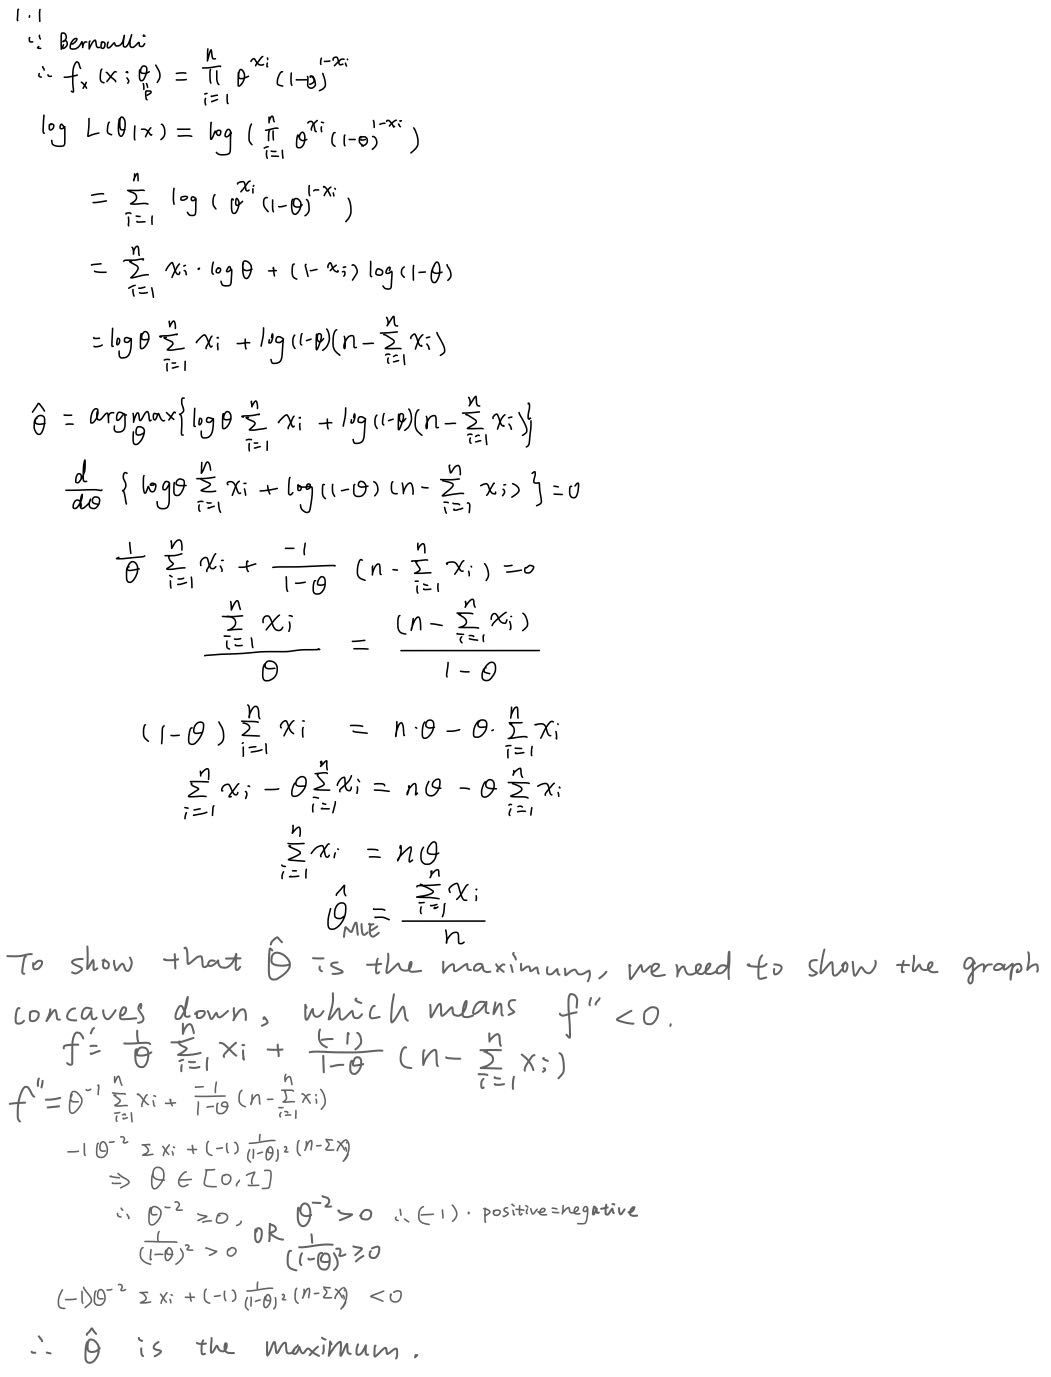 1.1
∵ Bernoulli
∴ fₓ(x; θ) = ∏_{i=1}^{n} θ^{xᵢ} (1-θ)^{1-xᵢ}
"
p
log L(θ|x) = log ( ∏_{i=1}^{n} θ^{xᵢ} (1-θ)^{1-xᵢ} )
= ∑_{i=1}^{n} log ( θ^{xᵢ} (1-θ)^{1-xᵢ} )
= ∑_{i=1}^{n} xᵢ · log θ + (1-xᵢ) log(1-θ)
= log θ ∑_{i=1}^{n} xᵢ + log(1-θ)(n - ∑_{i=1}^{n} xᵢ)
θ̂ = argmax_θ {log θ ∑_{i=1}^{n} xᵢ + log(1-θ)(n - ∑_{i=1}^{n} xᵢ)}
d/dθ { log θ ∑_{i=1}^{n} xᵢ + log(1-θ) (n - ∑_{i=1}^{n} xᵢ) } = 0
1/θ ∑_{i=1}^{n} xᵢ + -1/(1-θ) (n - ∑_{i=1}^{n} xᵢ) = 0
∑_{i=1}^{n} xᵢ / θ = (n - ∑_{i=1}^{n} xᵢ) / (1-θ)
(1-θ) ∑_{i=1}^{n} xᵢ = n·θ - θ· ∑_{i=1}^{n} xᵢ
∑_{i=1}^{n} xᵢ - θ ∑_{i=1}^{n} xᵢ = nθ - θ ∑_{i=1}^{n} xᵢ
∑_{i=1}^{n} xᵢ = nθ
θ̂_{MLE} = ∑_{i=1}^{n} xᵢ / n
To show that θ̂ is the maximum, we need to show the graph
concaves down, which means f" < 0.
f' = 1/θ ∑_{i=1}^{n} xᵢ + (-1)/(1-θ) (n - ∑_{i=1}^{n} xᵢ)
f" = θ^{-1} ∑_{i=1}^{n} xᵢ + -1/(1-θ) (n - ∑_{i=1}^{n} xᵢ)
-1 θ^{-2} Σ xᵢ + (-1) 1/(1-θ)² (n-Σx)
⇒ θ ∈ [0,1]
∴ θ^{-2} ≥ 0, OR θ^{-2} > 0 ∴ (-1) · positive = negative
1/(1-θ)² > 0 1/(1-θ)² ≥ 0
(-1)θ^{-2} Σ xᵢ + (-1) 1/(1-θ)² (n-Σx) < 0
∴ θ̂ is the maximum.